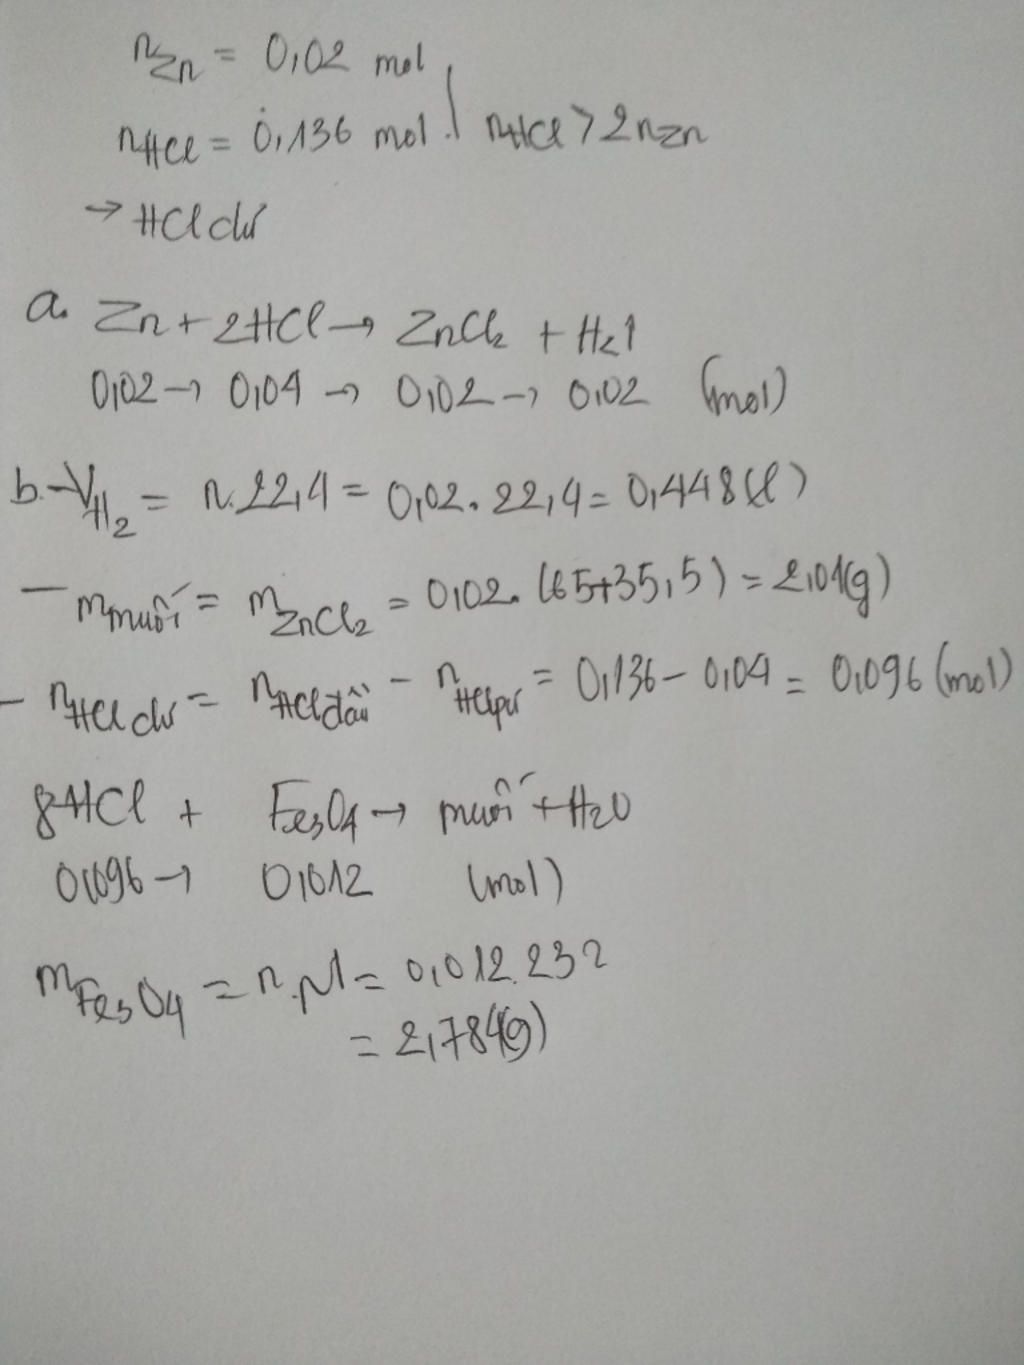 nZn = 0,02 mol
nHCl = 0,136 mol. | nHCl > 2nZn
→ HCl dư
a. Zn + 2HCl → ZnCl2 + H2↑
0,02 → 0,04 → 0,02 → 0,02 (mol)
b. - VH2 = n.22,4 = 0,02.22,4 = 0,448(l)
- mmuối = mZnCl2 = 0,02.(65+35,5) = 2,01(g)
- nHCl dư = nHCl đầu - nHCl pư = 0,136 - 0,04 = 0,096 (mol)
8HCl + Fe3O4 → muối + H2O
0,096 → 0,012 (mol)
mFe3O4 = n.M = 0,012.232
= 2,784(g)